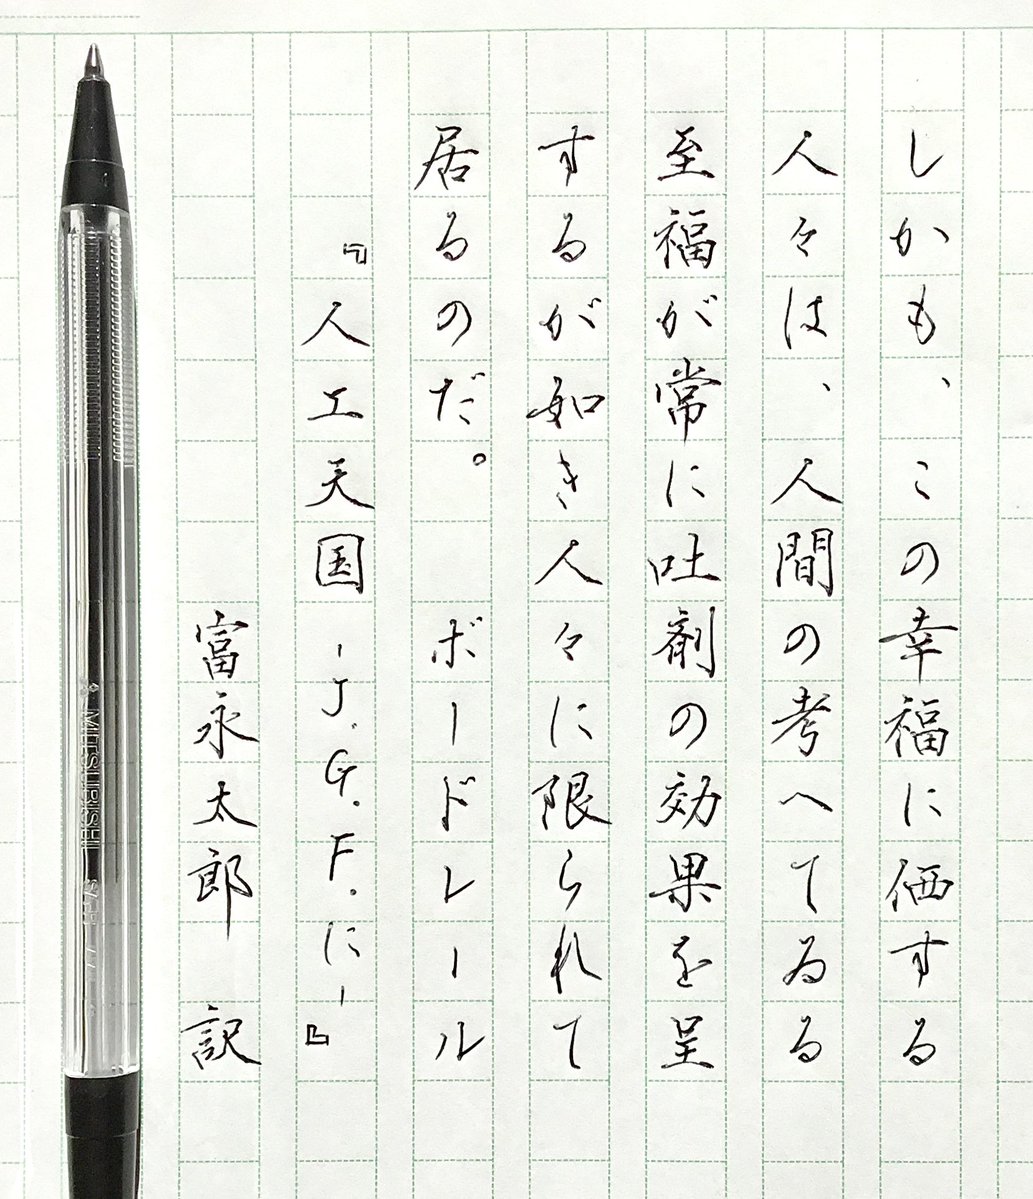 しかも、この幸福に価する
人々は、人間の考へてゐる
至福が常に吐剤の効果を呈
するが如き人々に限られて
居るのだ。　ボードレール
『人工天国－J.G.F.に－』
富永太郎　訳
MITSUBISHI